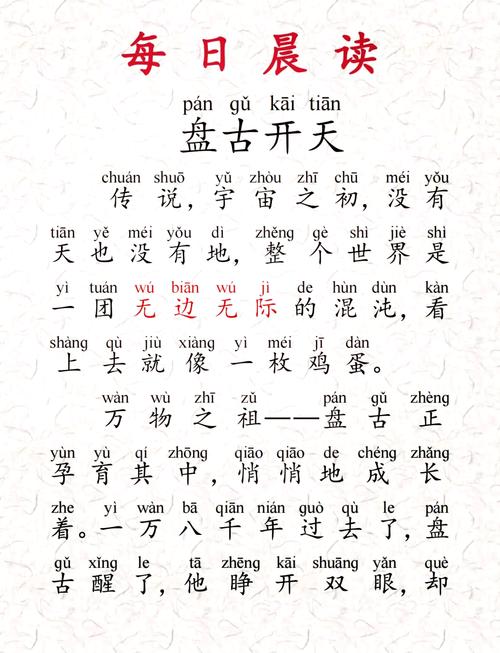 每日晨读
pán gǔ kāi tiān
盘古开天
chuán shuō yǔ zhòu zhī chū méi yǒu
传说，宇宙之初，没有
tiān yě méi yǒu dì zhěng gè shì jiè shì
天也没有地，整个世界是
yì tuán wú biān wú jì de hùn dùn kàn
一团无边无际的混沌，看
shàng qù jiù xiàng yì méi jī dàn
上去就像一枚鸡蛋。
wàn wù zhī zǔ pán gǔ zhèng
万物之祖——盘古正
yùn yù qí zhōng qiāo qiāo de chéng zhǎng
孕育其中，悄悄地成长
zhe yì wàn bā qiān nián guò qù le pán
着。一万八千年过去了，盘
gǔ xǐng le tā zhēng kāi shuāng yǎn què
古醒了，他睁开双眼，却